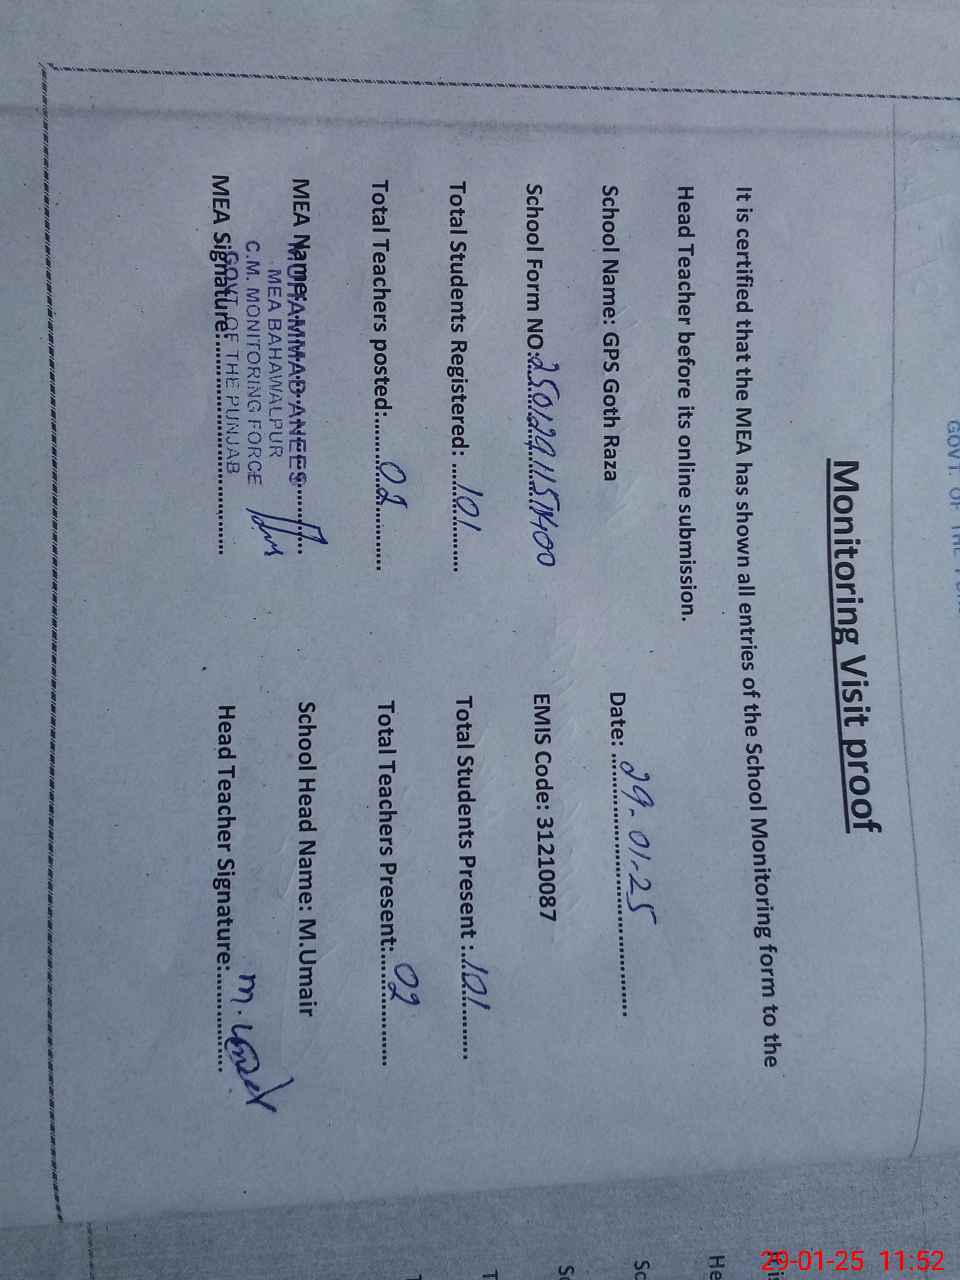 GOVT. OF THE
Monitoring Visit proof
It is certified that the MEA has shown all entries of the School Monitoring form to the
Head Teacher before its online submission.
School Name: GPS Goth Raza Date: 29-01-25
School Form NO: EMIS Code: 31210087
Total Students Registered: 101 Total Students Present : 101
Total Teachers posted: 02 Total Teachers Present: 02
MEA Name: School Head Name: M.Umair
MUHAMMAD ANEES
MEA BAHAWALPUR
C.M. MONITORING FORCE
GOVT. OF THE PUNJAB
MEA Signature: Head Teacher Signature: M. Umair
He
Sc
Sc
T
T
29-01-25 11:52